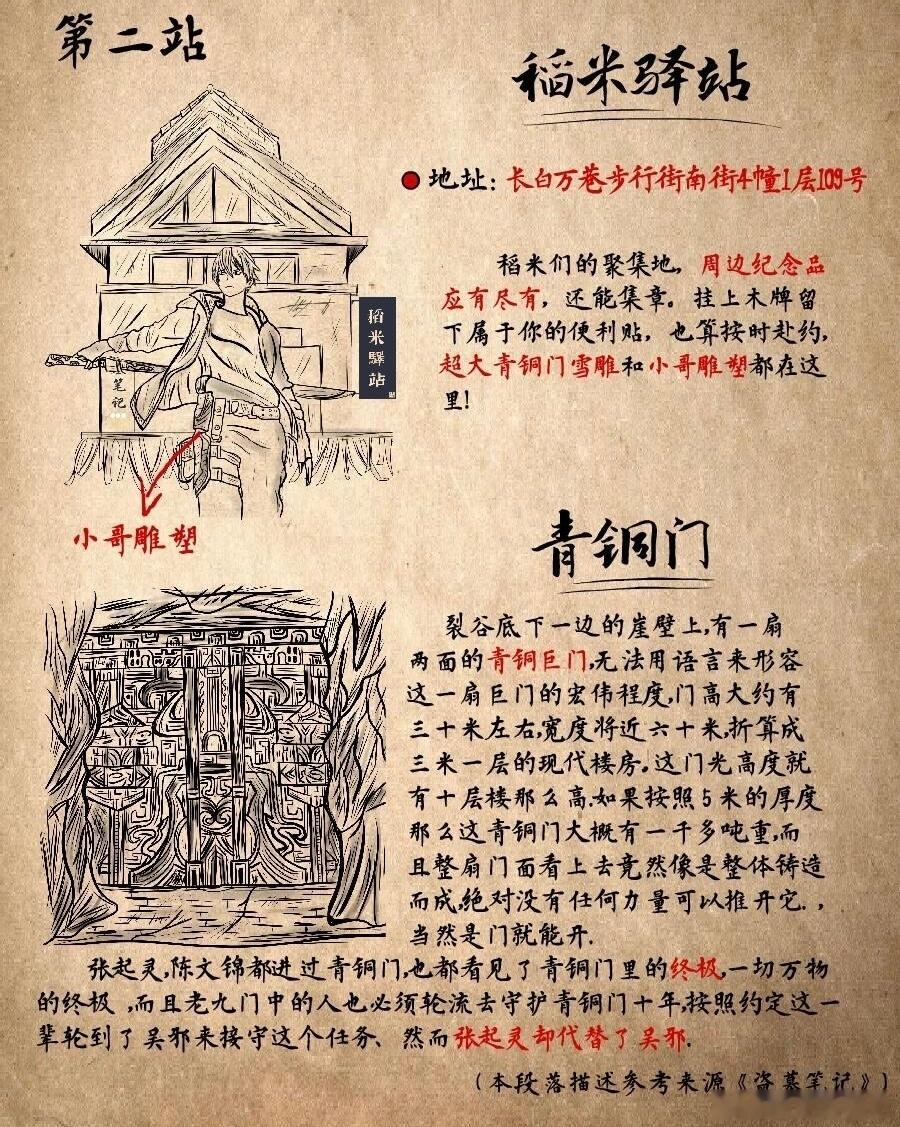 第二站
稻米驿站
地址：长白万巷步行街南街4幢1层109号
稻米们的聚集地，周边纪念品
应有尽有，还能集章。挂上木牌留
下属于你的便利贴，也算按时赴约，
超大青铜门雪雕和小哥雕塑都在这
里！
稻米驛站
笔记
小哥雕塑
青铜门
裂谷底下一边的崖壁上,有一扇
两面的青铜巨门,无法用语言来形容
这一扇巨门的宏伟程度,门高大约有
三十米左右,宽度将近六十米,折算成
三米一层的现代楼房.这门光高度就
有十层楼那么高.如果按照5米的厚度
那么这青铜门大概有一千多吨重,而
且整扇门面看上去竟然像是整体铸造
而成,绝对没有任何力量可以推开它.，
当然是门就能开.
张起灵,陈文锦都进过青铜门,也都看见了青铜门里的终极,一切万物
的终极，而且老九门中的人也必须轮流去守护青铜门十年,按照约定这一
辈轮到了吴邪来接守这个任务、然而张起灵却代替了吴邪.
（本段落描述参考来源《盗墓笔记》）